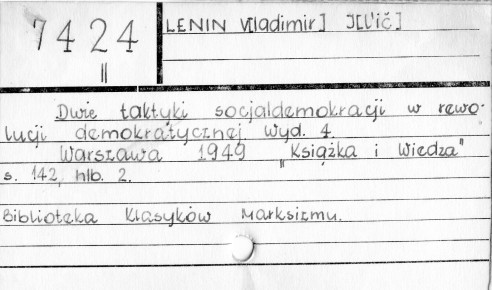 7424
II
LENIN W[ladimir] I[l'ič]
Dwie taktyki socjaldemokracji w rewo-
lucji demokratycznej. Wyd. 4.
Warszawa 1949 "Książka i Wiedza"
s. 142, nlb. 2.
Biblioteka Klasyków Marksizmu.